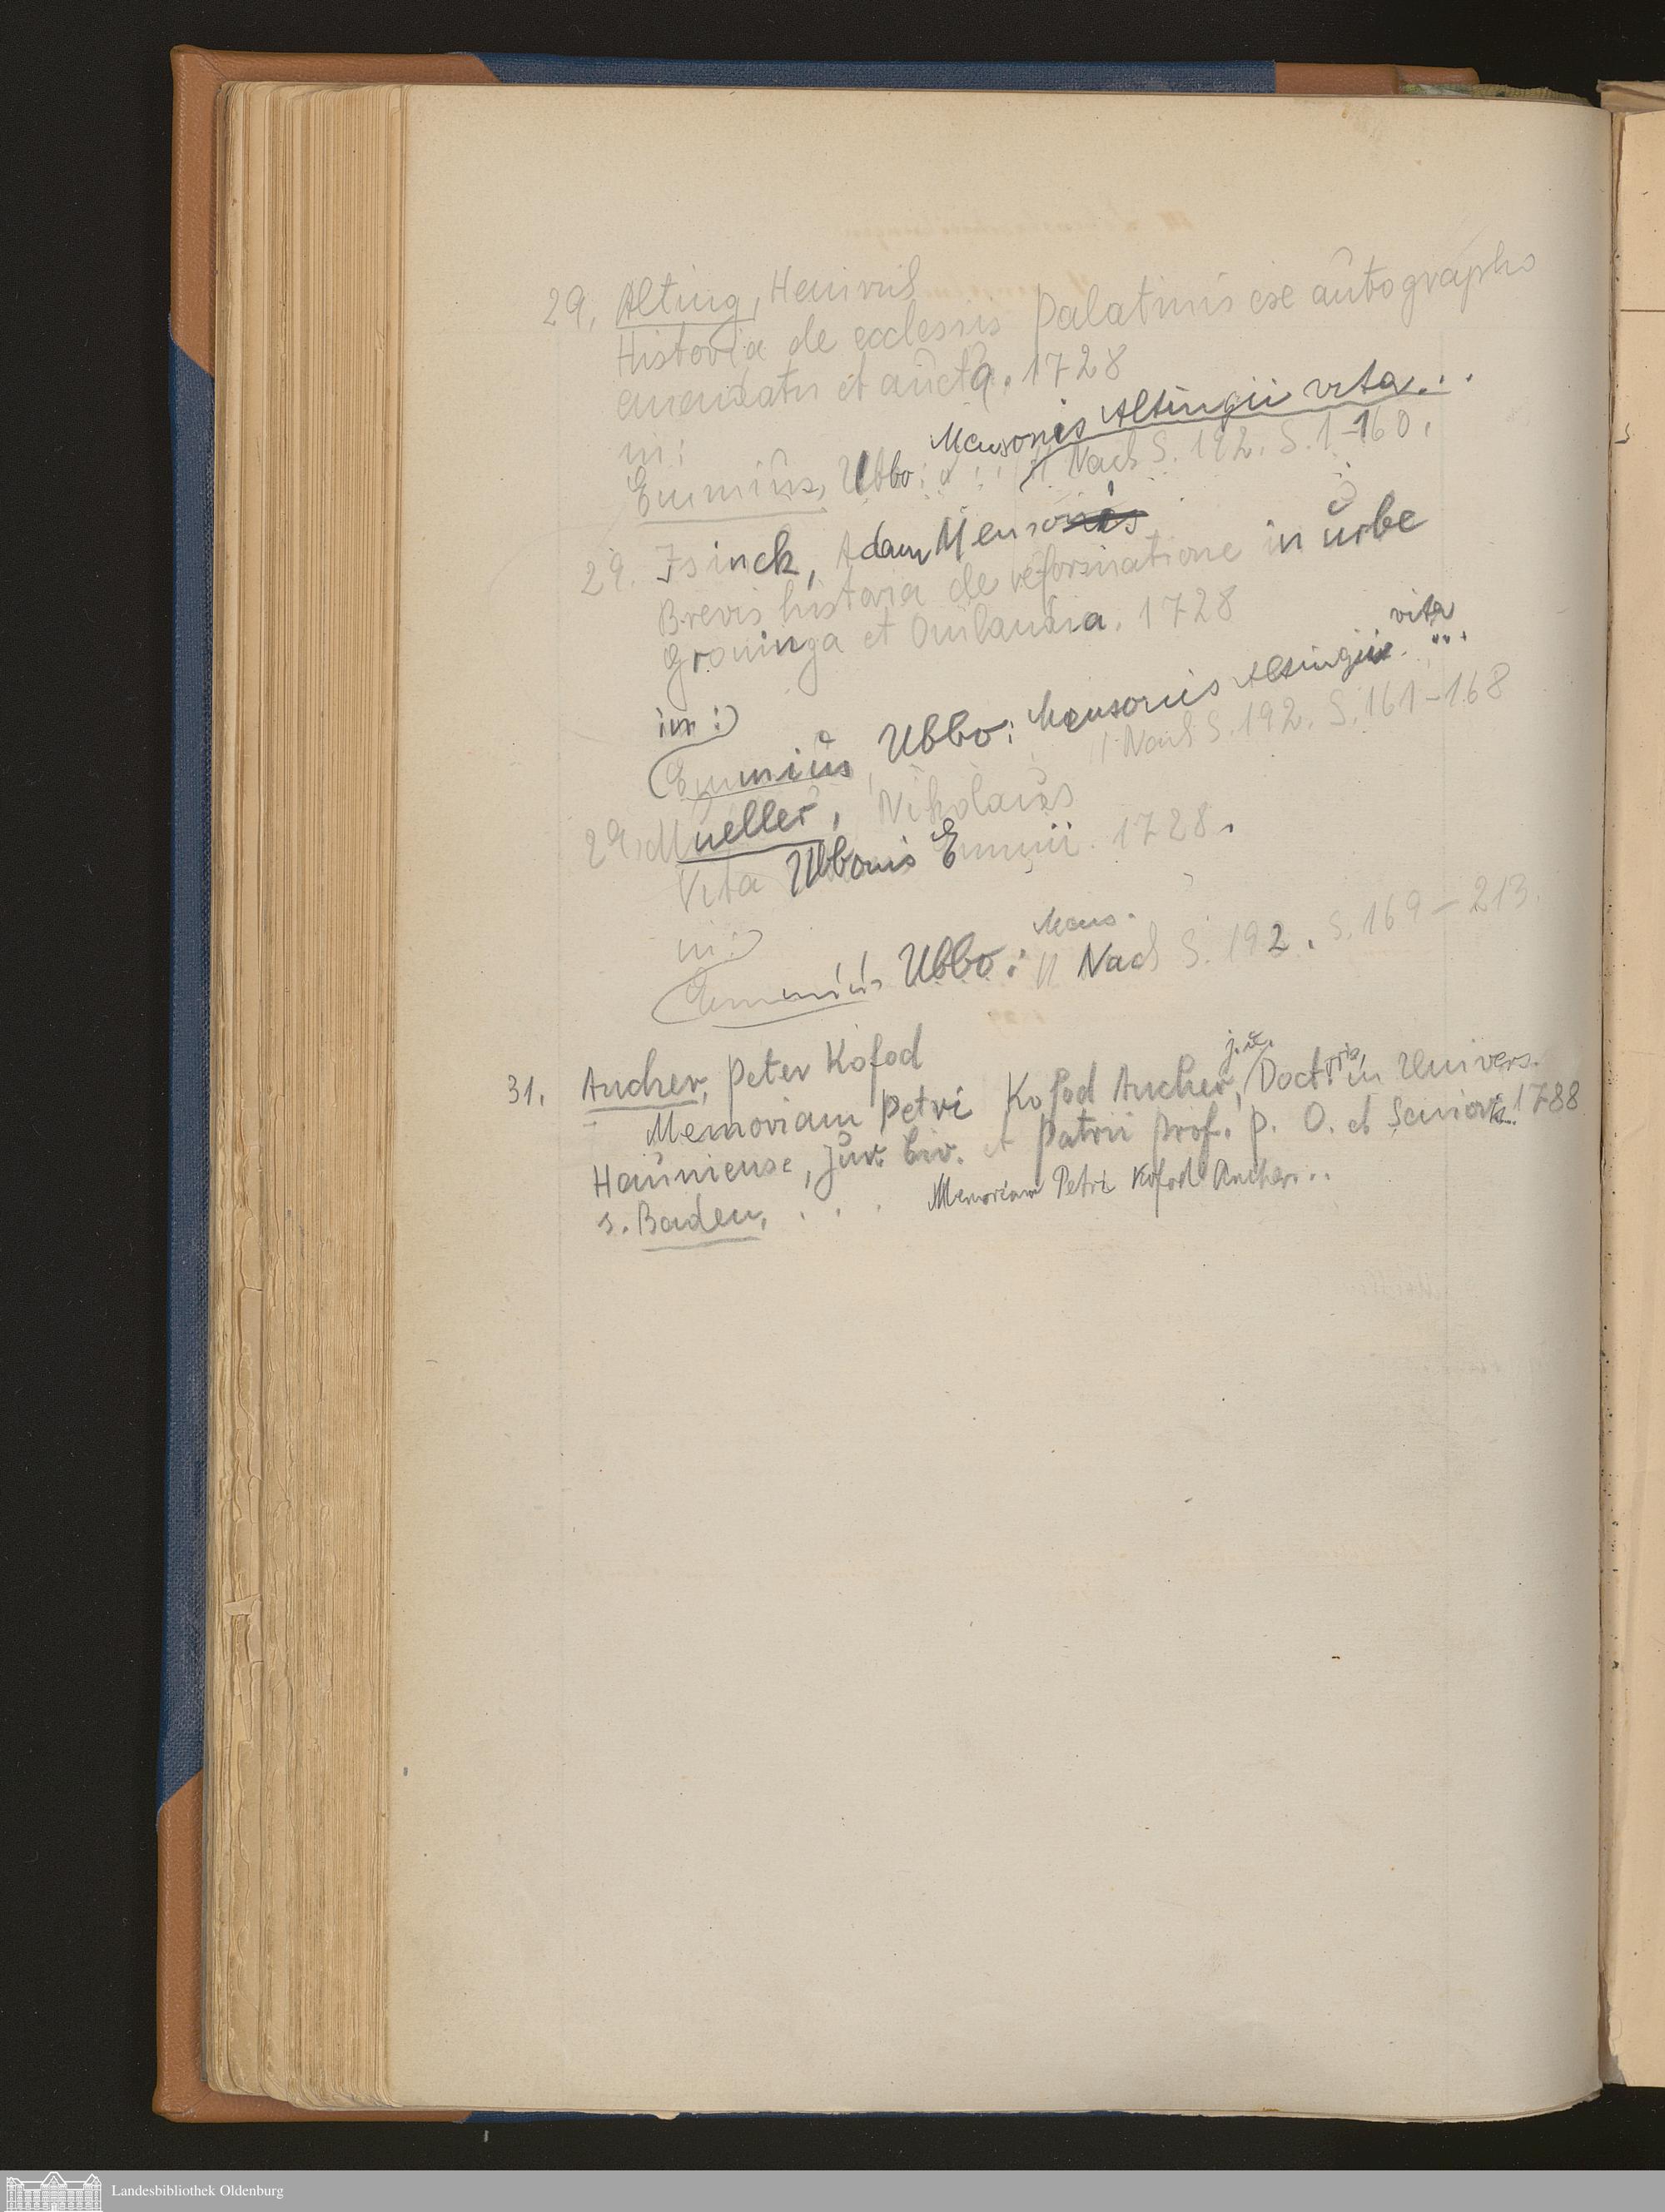 29. Alting, Heinrich
Historia de ecclesiis Palatinis exe autographo
emendatis et aucta. 1728
in:
Emmius, Ubbo: Mensonis Altingii vita...
// Nach S. 192. S. 1-160.
29. Isinck, Adam Menso
Brevis historia de reformatione in urbe
Groninga et Omlandia. 1728
in:
Emmius, Ubbo: Mensonis Altingii vita ...
// Nach S. 192. S. 161-168
29. Mueller, Nikolaus
Vita Ubbonis Emmii. 1728.
in:
Emmius Ubbo: Mens.
// Nach S. 192. S. 169-213.
31. Ancher, Peter Kofod
Memoriam Petri Kofod Ancher, j.u. Doctoris, in Univers.
Hauniense, Jur. Civ. et Patrii Prof. P. O. et Senioris. 1788
s. Baden, . . . Memoriam Petri Kofod Ancher...
Landesbibliothek Oldenburg